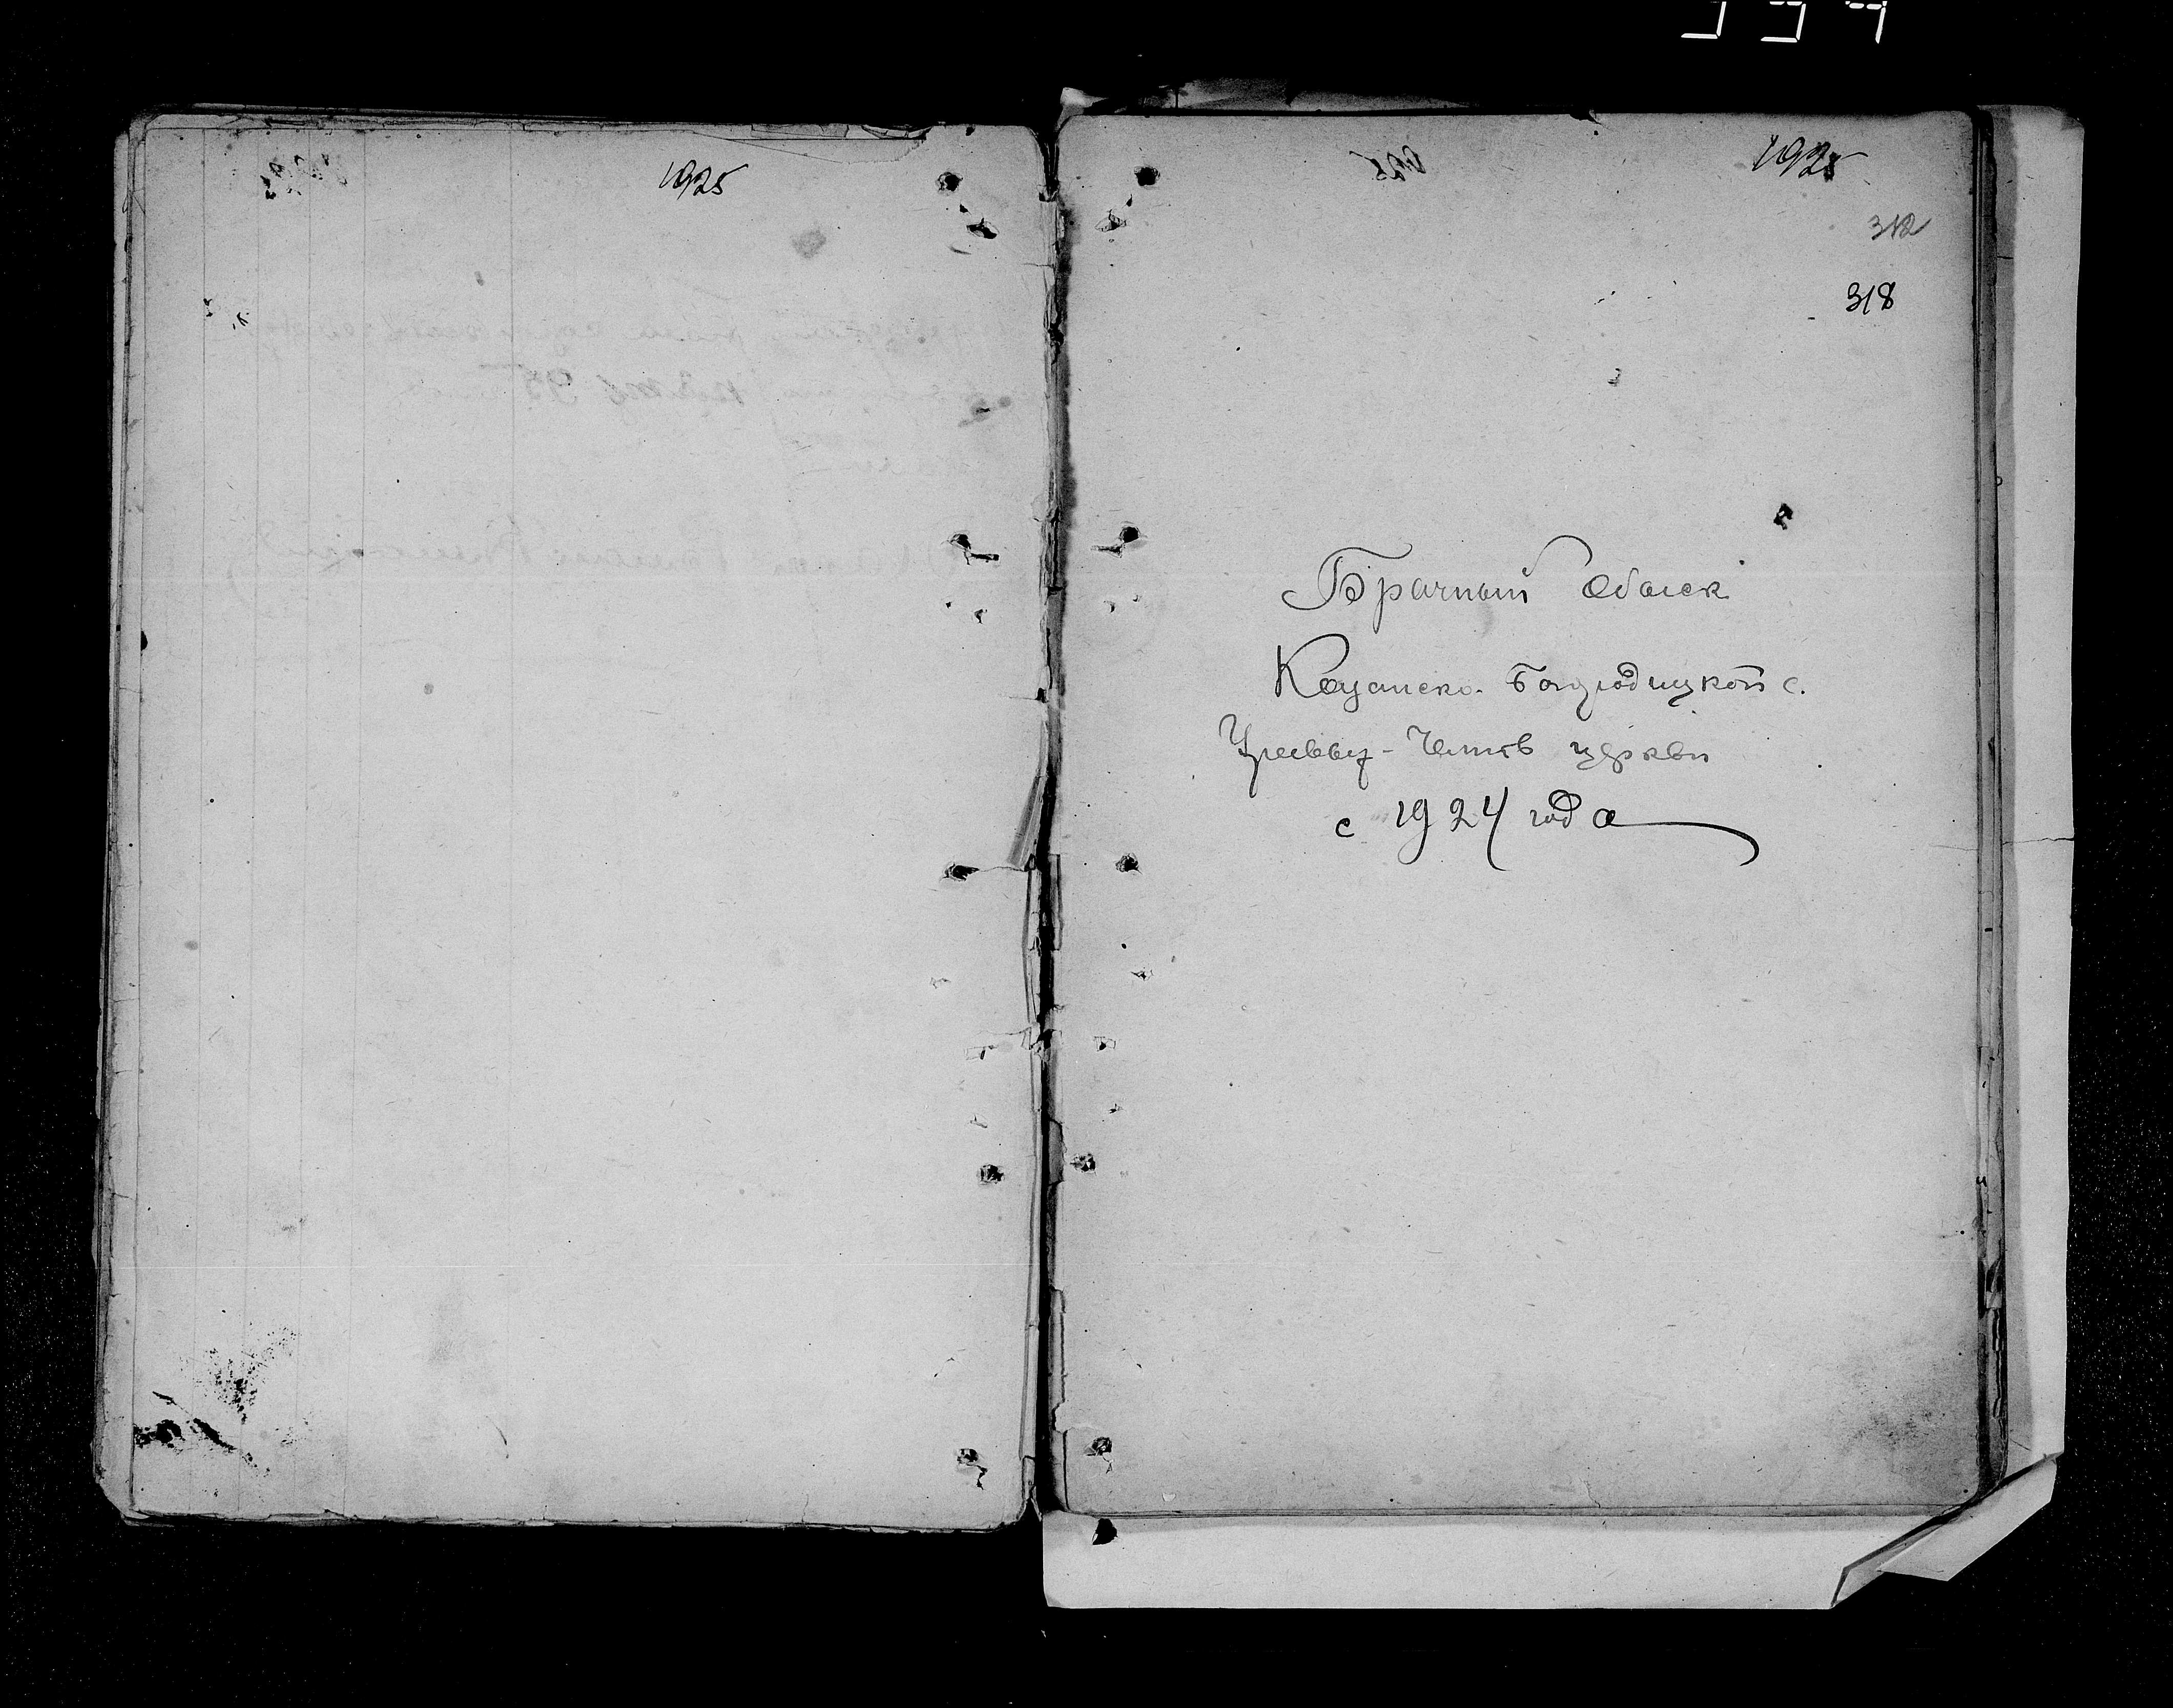 1925
1925
312
318
Брачный обыск
Казанско-Богородицкой с.
церкви
с 1924 года